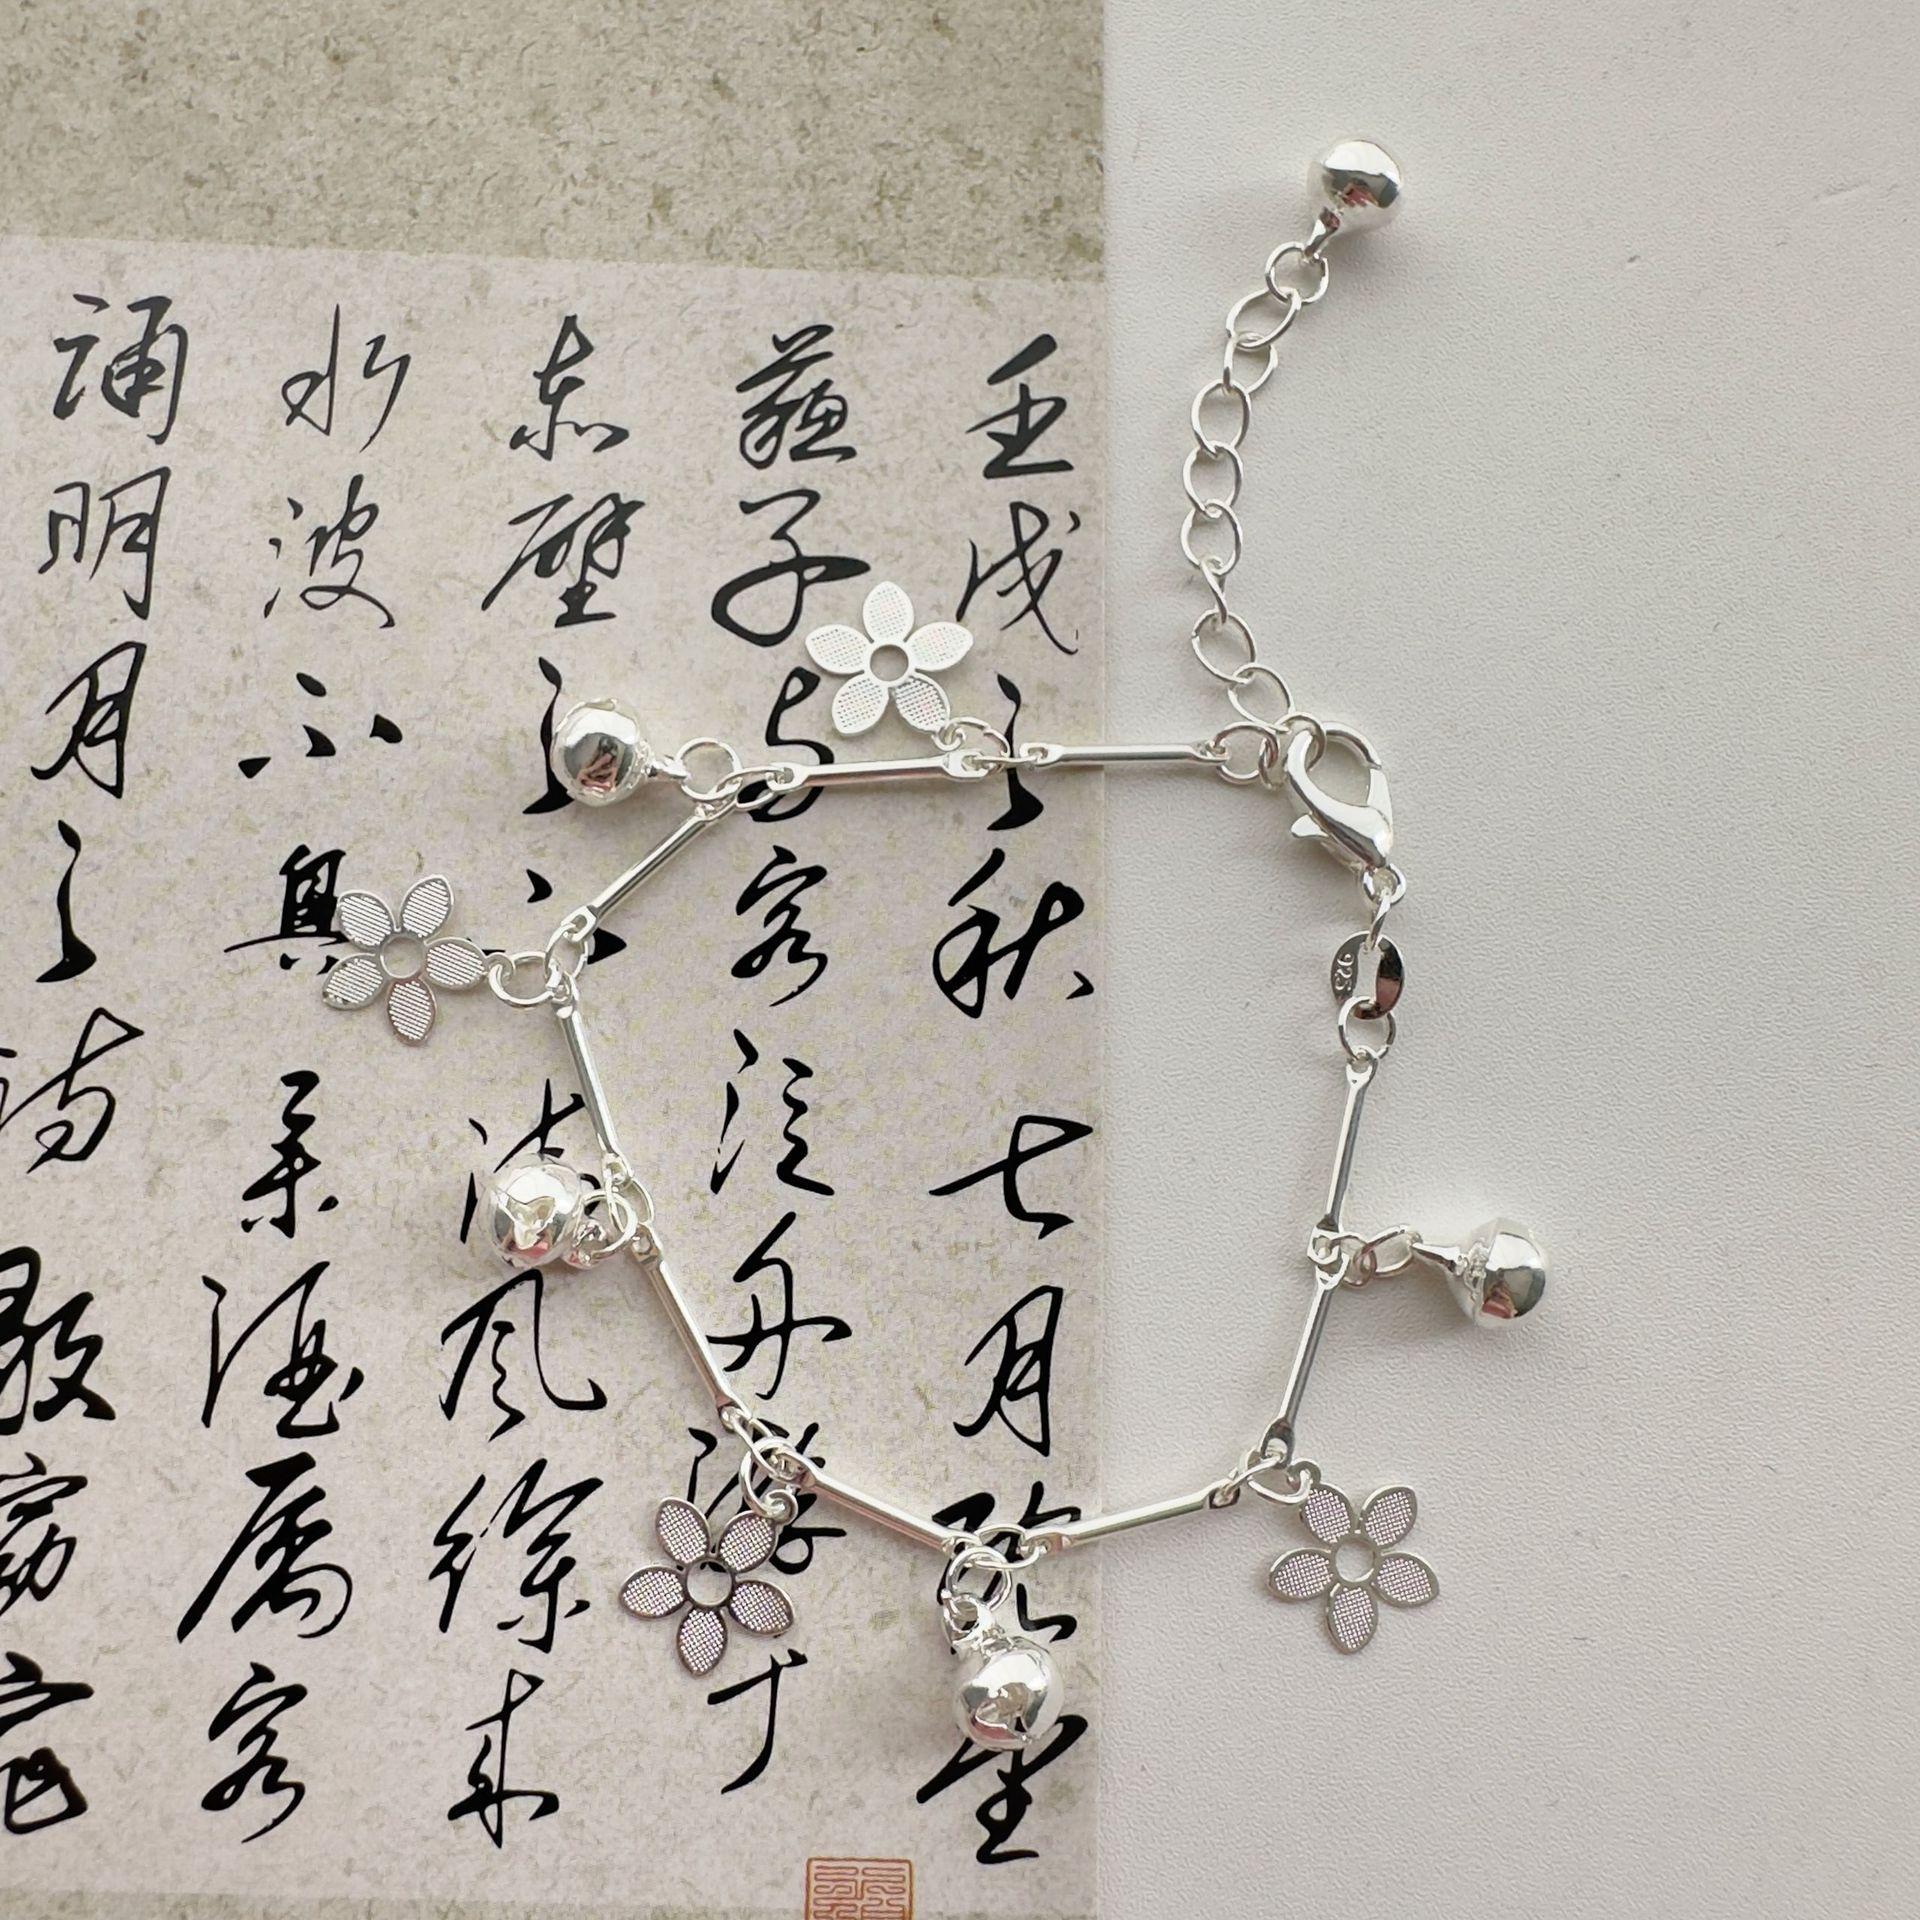 壬戌之秋七月既望
蘇子与客泛舟游于
赤壁之下清风徐来
水波不興举酒属客
诵明月之诗歌窈窕
925